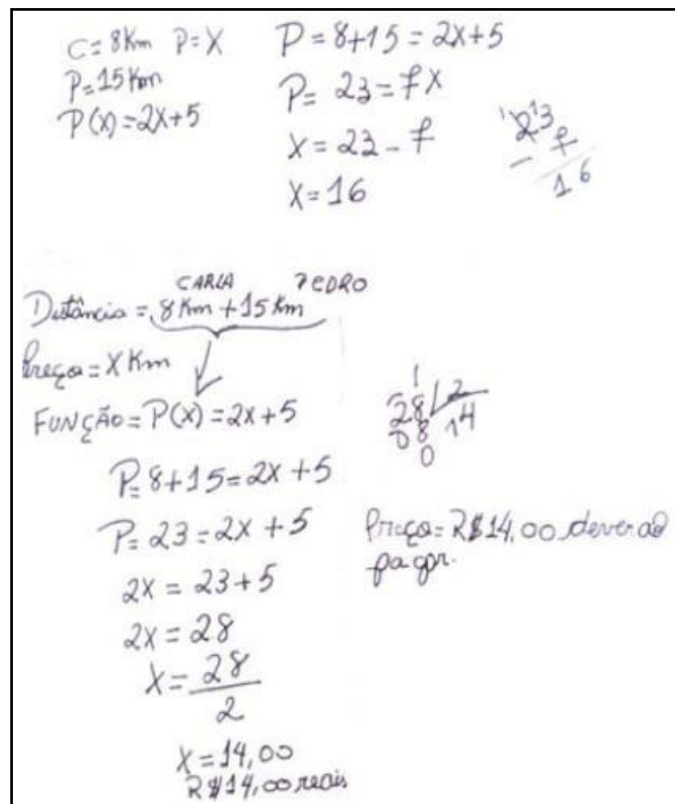 C = 8Km P = X
P = 15Km
P(X) = 2X+5
P = 8+15 = 2X+5
P = 23 = 7X
X = 23 - 7
X = 16
¹2¹3
- 7
16
CARLA PEDRO
Distância = 8Km + 15Km
Preço = X Km
FUNÇÃO = P(X) = 2X+5
P = 8+15 = 2X+5
P = 23 = 2X + 5
2X = 23+5
2X = 28
X = 28
2
X = 14,00
R$14,00 reais
1
28 2
08 14
0
Preço = R$14,00 deverão
pagar.